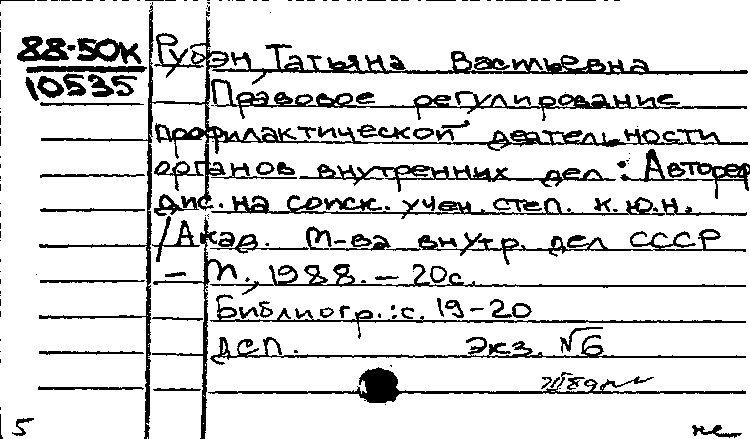 88-50к Рубэн, Татьяна Вастьевна
10535 Правовое регулирование
профилактической деятельности
органов внутренних дел : Автореф
дис. на соиск. учен. степ. к.ю.н.
/Акад. М-ва внутр. дел СССР
– М., 1988. – 20с.
Библиогр.: с. 19-20
ДСП. Экз. №6
5 не